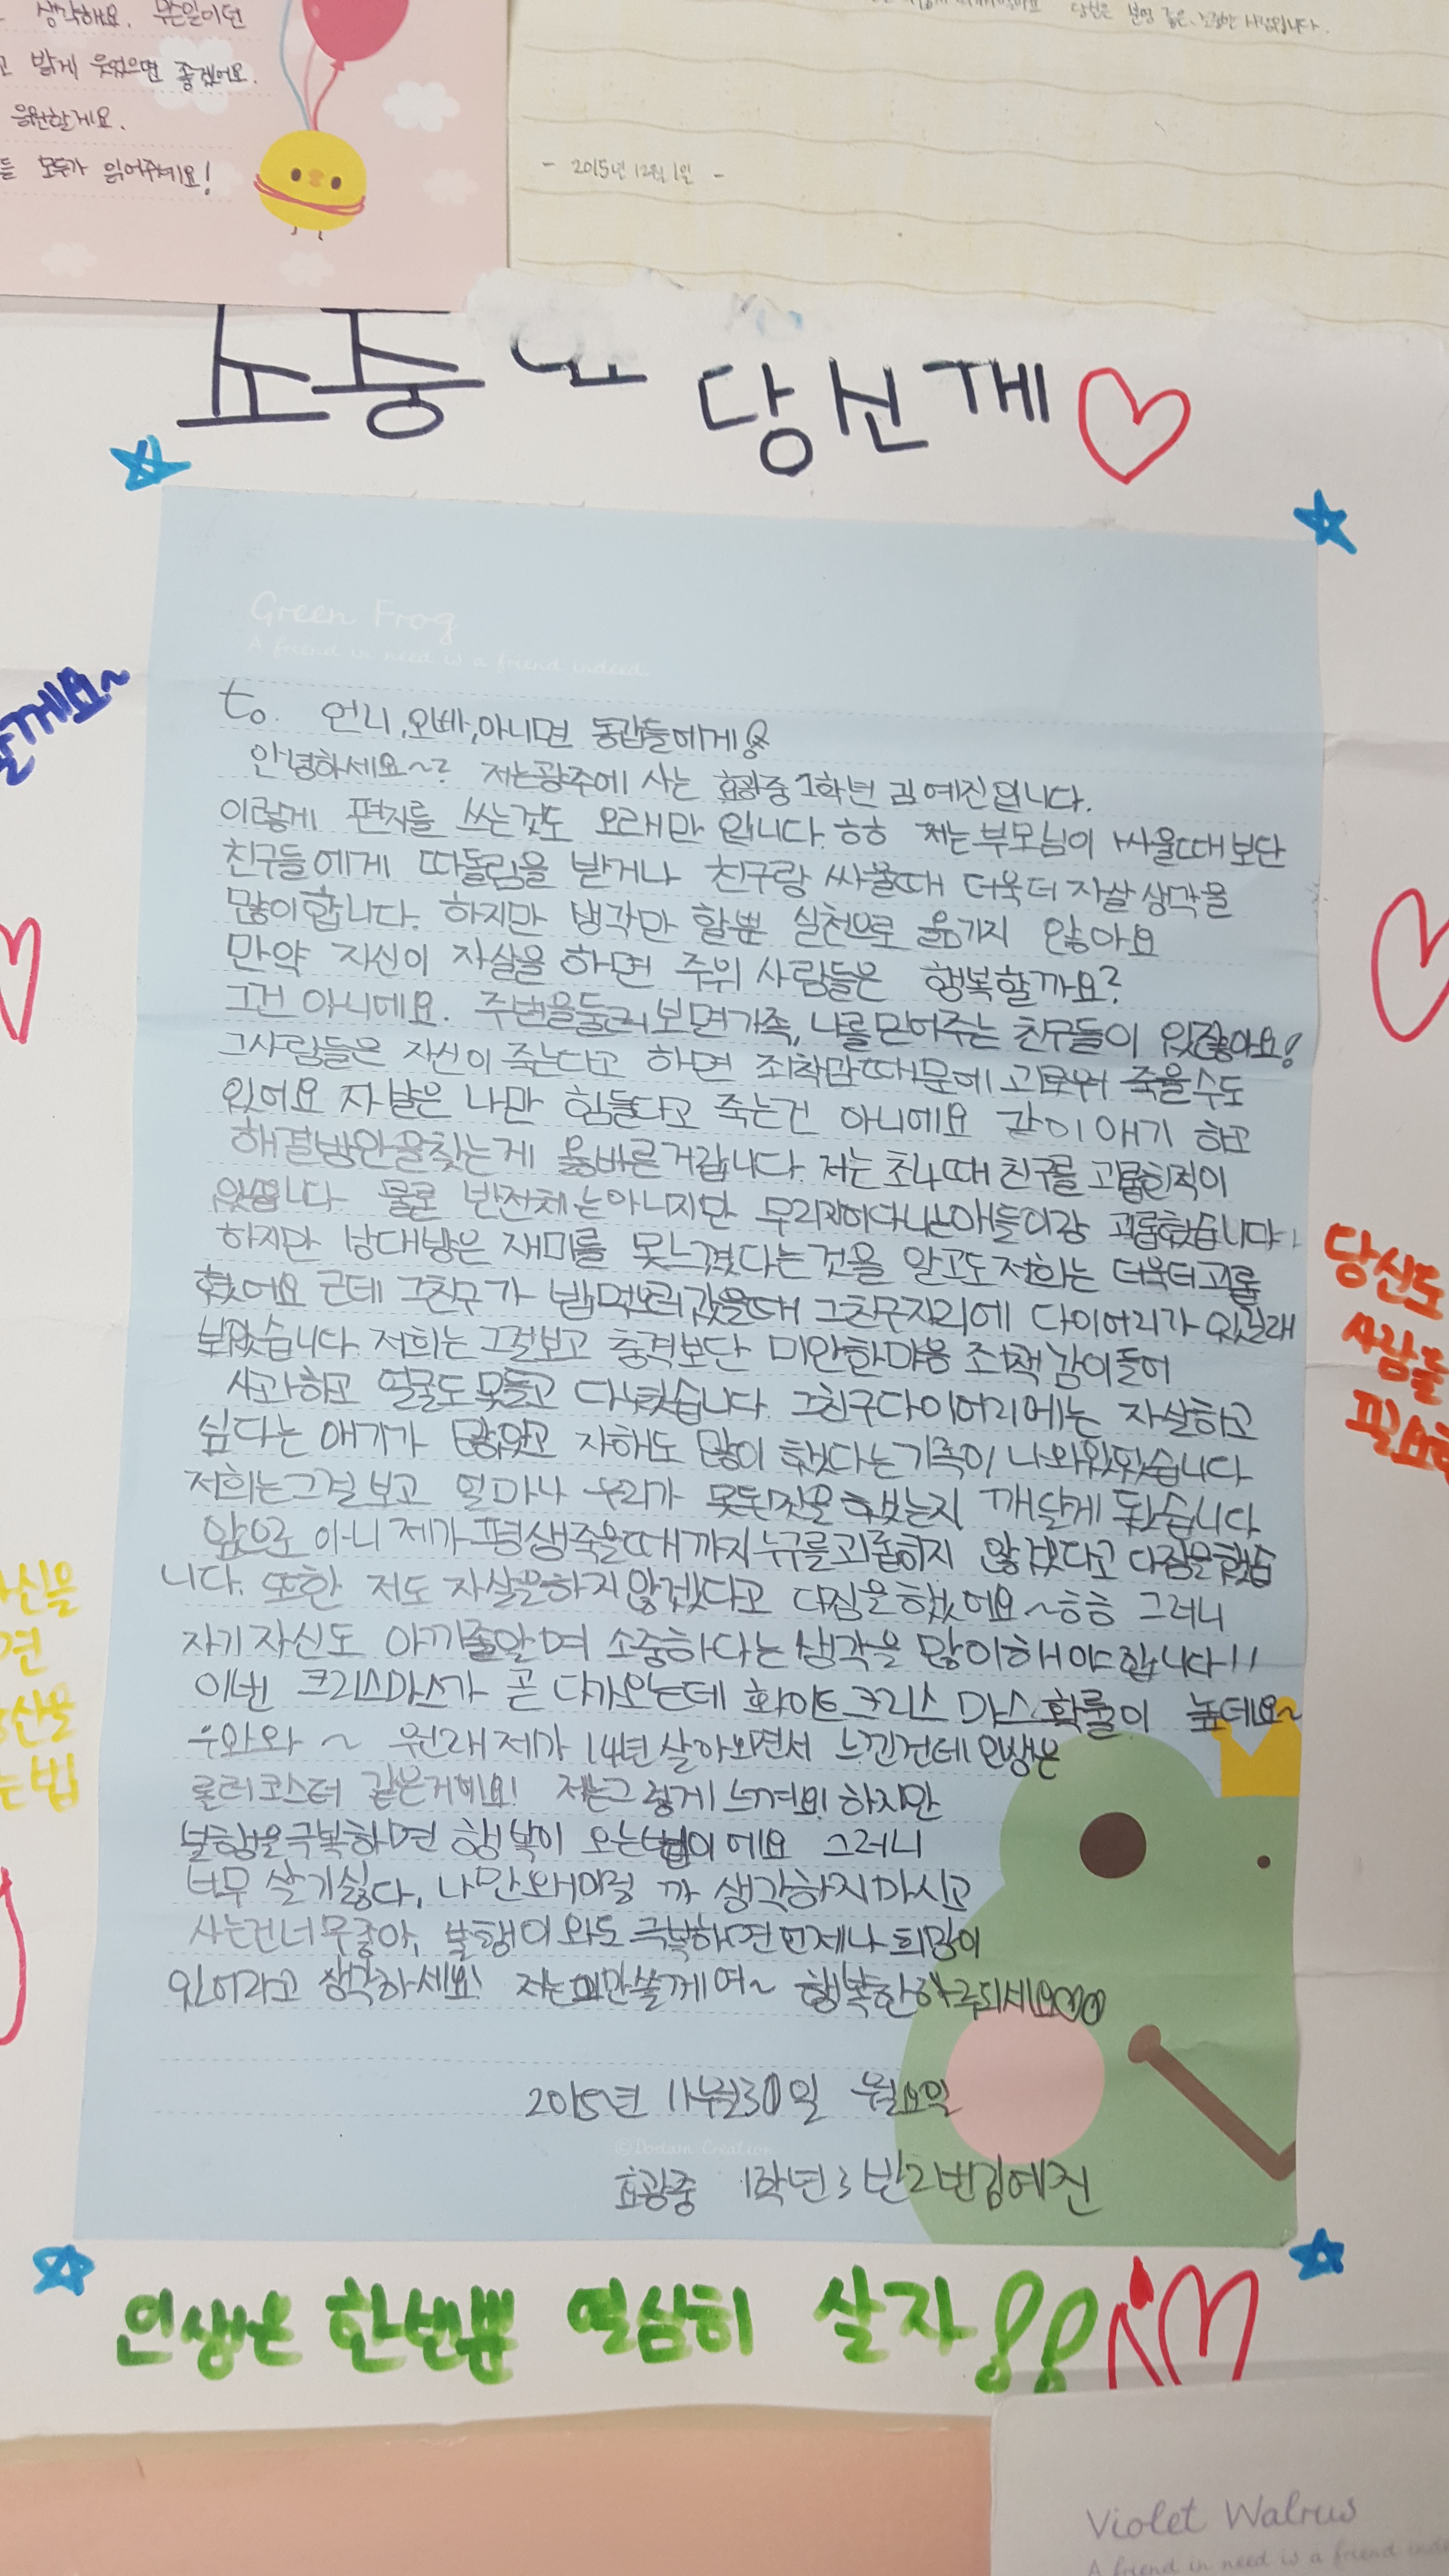 생각해요. 무슨일이던
고 밝게 웃었으면 좋겠어요.
응원할게요.
들 모두가 읽어주세요!
당신은 분명 좋은, 소중한 사람입니다.
- 2015년 12월 1일 -
소중한 당신께
Green Frog
A friend in need is a friend indeed.
to. 언니, 오빠, 아니면 동갑들에게
안녕하세요~? 저는광주에 사는 효광중 1학년 김예진입니다.
이렇게 편지를 쓰는것도 오래만 입니다. ㅎㅎ 저는 부모님이 싸울때 보단
친구들에게 따돌림을 받거나 친구랑 싸울때 더욱더 자살 생각을
많이합니다. 하지만 생각만 할뿐 실천으로 옮기지 않아요
만약 자신이 자살을 하면 주위 사람들은 행복할까요?
그건 아니에요. 주변을둘러보면가족, 나를믿어주는 친구들이 있잖아요!
그사람들은 자신이 죽는다고 하면 죄책감때문에 괴로워 죽을수도
있어요 자살은 나만 힘들다고 죽는건 아니에요 같이 얘기 하고
해결방안을찾는게 옳바른거랍니다. 저는 초4때 친구를 괴롭힌적이
있습니다 물론 반전체는아니지만 무리지어다니는애들이랑 괴롭혔습니다.
하지만 상대방은 재미를 못느꼈다는 것을 알고도 저희는 더욱더괴롭
혔어요 근데 그친구가 밥먹으러갔을때 그친구자리에 다이어리가 있길래
봐었습니다. 저희는 그걸보고 충격보단 미안한마음 죄책감이들어
사과하고 얼굴도 못들고 다녔습니다. 그친구다이어리에는 자살하고
싶다는 얘기가 많았고 자해도 많이 했다는기록이 나와있었습니다
저희는그걸 보고 얼마나 우리가 못된짓을 했는지 깨닫게 됐습니다
앞으로 아니 제가 평생죽을때까지 누구를괴롭히지 않겠다고 다짐을했습
니다. 또한 저도 자살을하지않겠다고 다짐을했어요~ㅎㅎ 그러니
자기자신도 아끼줄알며 소중하다는 생각을 많이해야합니다!!
이번 크리스마스가 곧 다가오는데 화이트크리스 마스 확률이 높데요~
우와와 ~ 원래 제가 14년 살아오면서 느낀건데 인생은
롤러코스터 같은거에요! 저는그렇게 느껴요! 하지만
불행을극복하면 행복이 오는법이에요 그러니
너무 살기싫다, 나만왜이럴 까 생각하지마시고
사는건너무좋아, 불행이와도 극복하면언제나 희망이
있어라고 생각하세요! 저는이만쓸께여~ 행복한하루되세요
2015년 11월30일 월요일
©Dodam Creation
효광중 1학년 3반 2번김예진
게요~
당신도
사람들
자신을
는법
인생은 한번뿐 열심히 살자!!
Violet Walrus
A friend in need is a friend